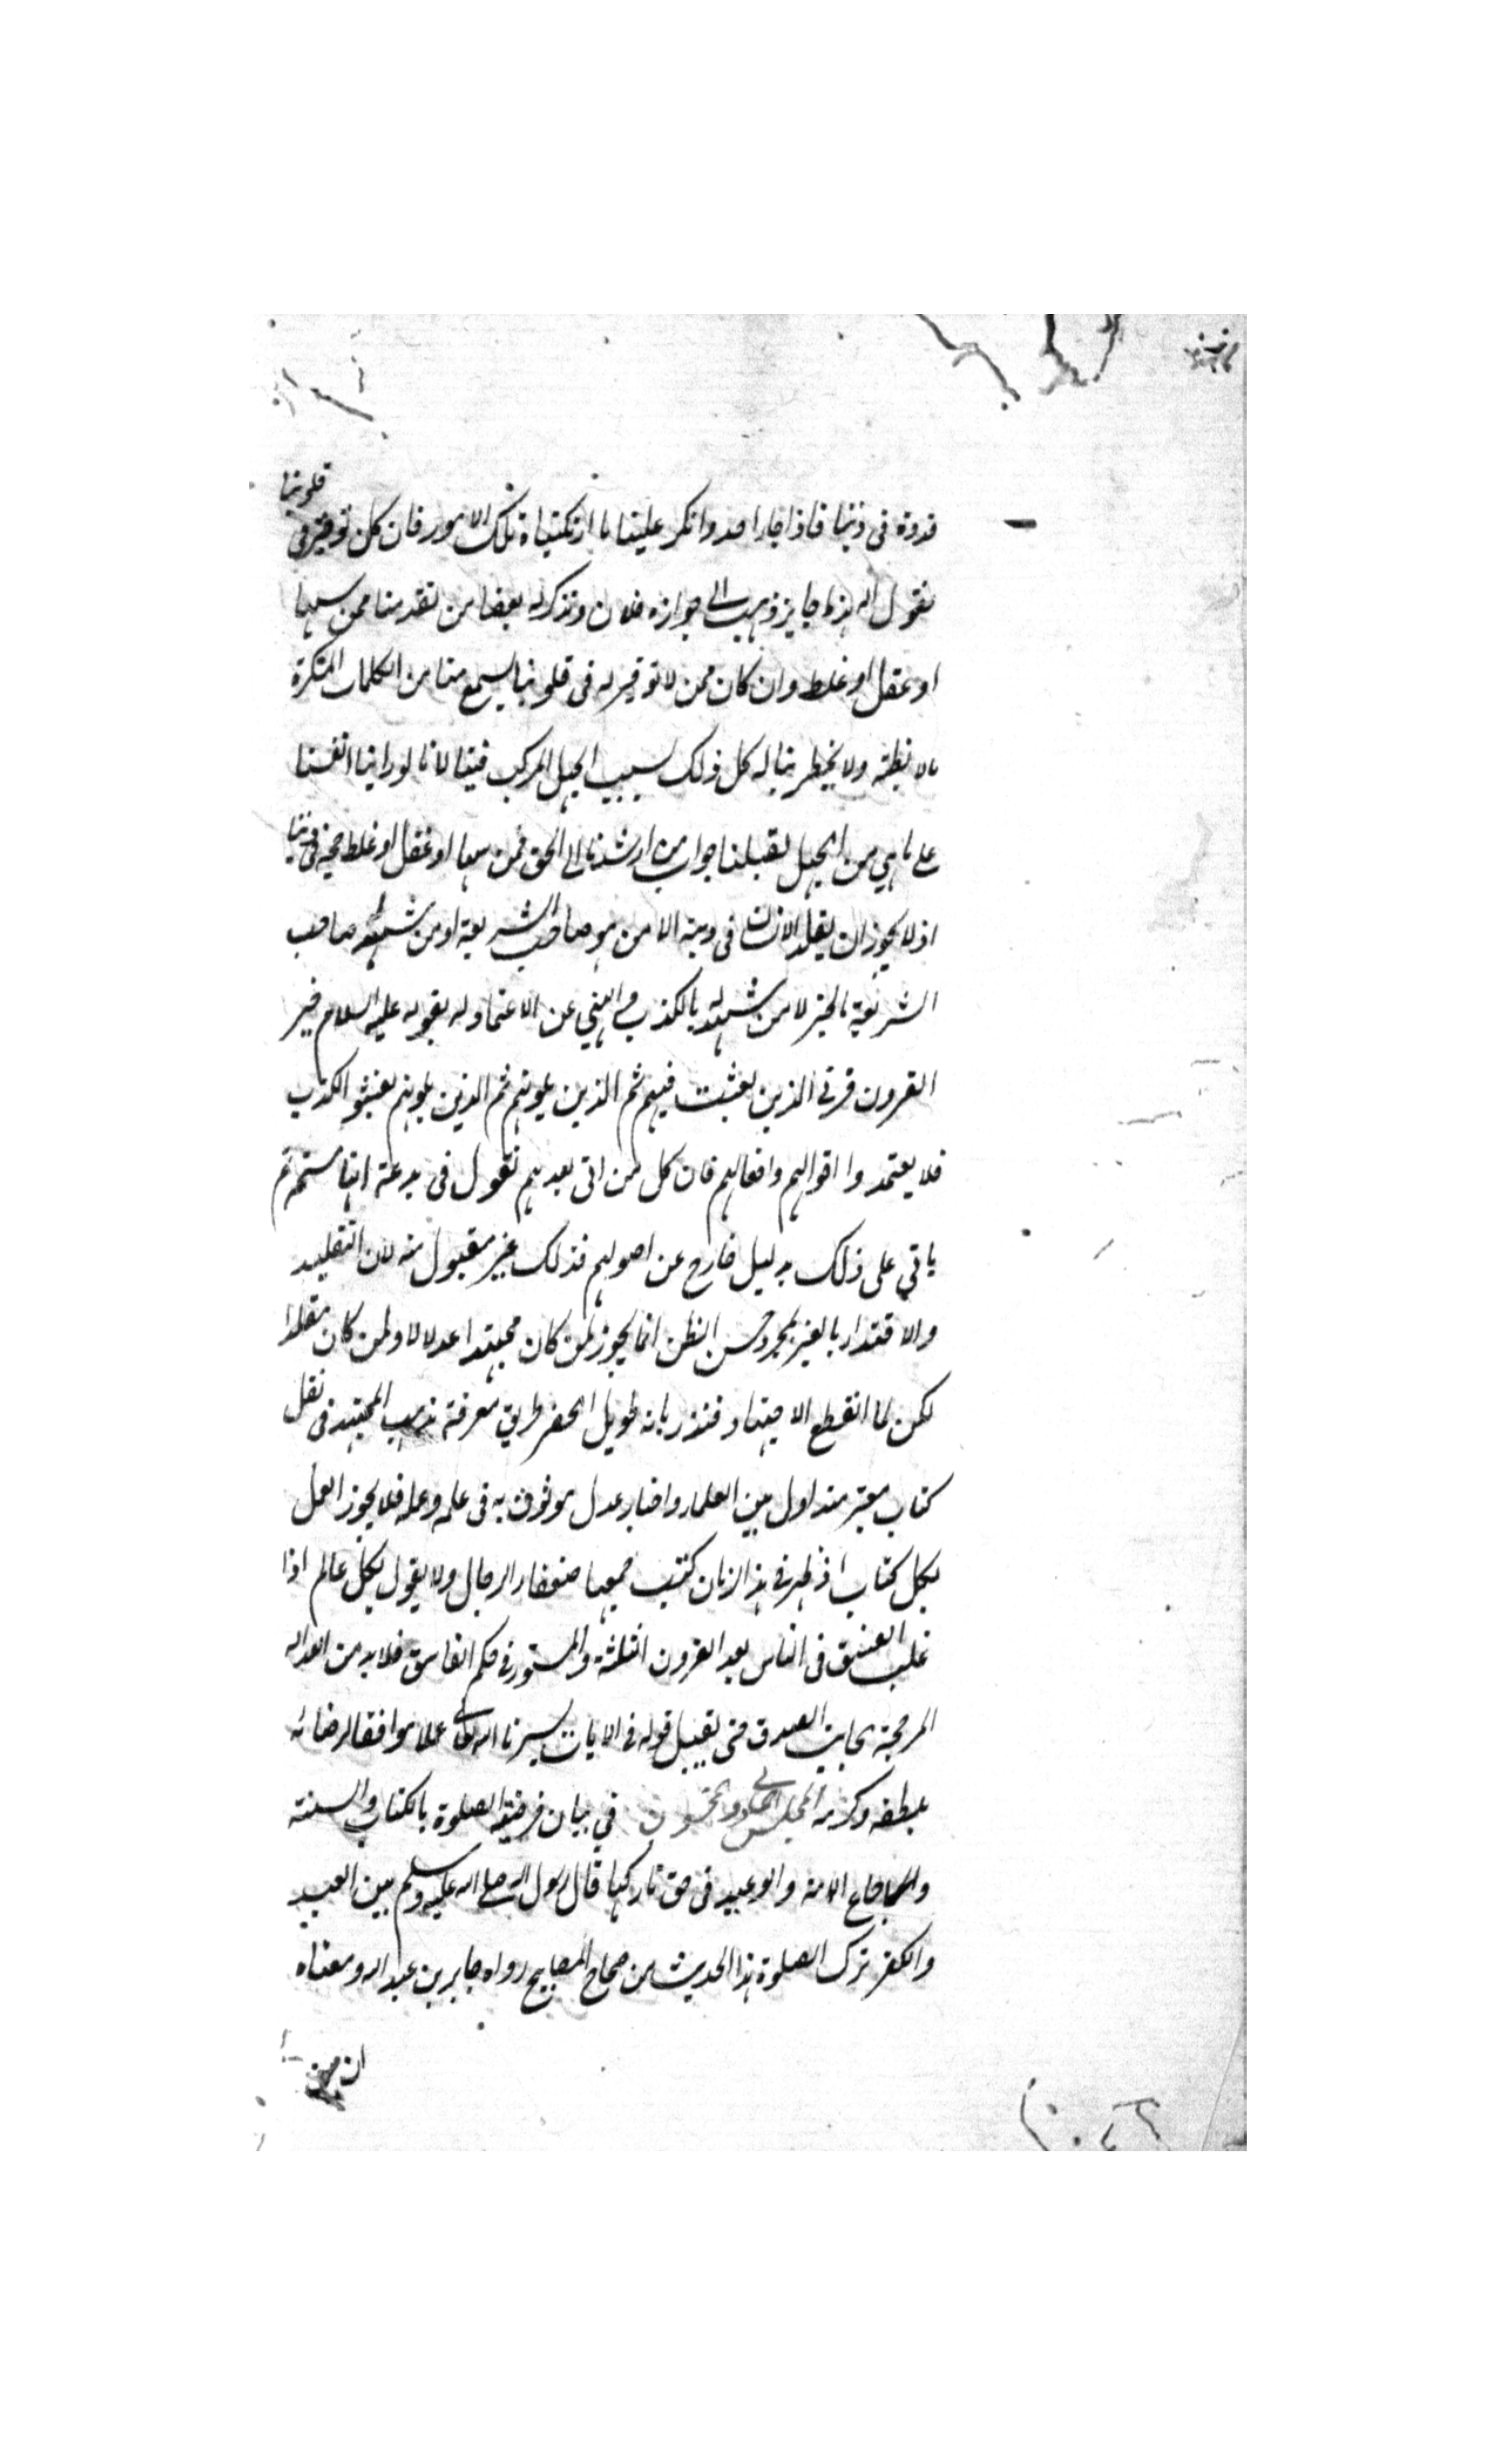 قدوة فى ديننا فاذا جاء احد وانكر علينا ما ارتكبناه تلك الامور فان كان توقير فى قلوبنا
نقول له هذا جايز ذهب الى جوازه فلان ونذكر له بعضا من تقدمنا ممن سها
او غفل او غلط وان كان ممن لا توقير له فى قلوبنا يسمع منا من الكلمات المنكرة
ما لا يظنه ولا يخطر بباله كل ذلك بسبب الجهل المركب فينا لانا لو راينا انفسنا
على ما هي من الجهل لقبلنا جواب من ارشدنا الى الحق فمن سها او غفل او غلط حجة فى ديننا
اذ لا يجوز ان يقلد الانسان فى دينه الا من هو صاحب الشريعة او من شهد له صاحب
الشريعة بالخير لا من شهد له بالكذب والنهي عن الاعتماد له بقوله عليه السلام خير
القرون قرنى الذين بعثت فيهم ثم الذين يلونهم ثم الذين يلونهم يفشو الكذب
فلا يعتمدوا اقوالهم وافعالهم فان كل من اتى بعدهم نقول فى بدعة انها مستحبة ثم
ياتي على ذلك بدليل خارج عن اصولهم فذلك غير مقبول منه لان التقليد
والاقتداء بالغير بمجرد حسن الظن انما يجوز لمن كان مجتهدا عدلا لا ولمن كان مقلدا
لكن لما انقطع الاجتهاد منذ زمان طويل انحصر طريق معرفة مذهب المجتهد فى نقل
كتاب معتبر متداول بين العلماء واخبار عدل موثوق به فى علمه وعمله فلا يجوز العمل
بكل كتاب اذ ظهر فى هذا الزمان كتب جمعها ضعفاء الرجال ولا يقول بكل عالم اذا
غلب الفسق فى الناس بعد القرون الثلثة والمستور فى حكم الفاسق فلا بد من العدالة
المرجحة بجانب الصدق حتى يقبل قوله فى الايات يسرنا الله تعالى عملا موافقا لرضائه
بلطفه وكرمه المجلس الحادى والخمسون في بيان فرضية الصلوة بالكتاب والسنة
واجماع الامة والوعيد فى حق تاركها قال رسول الله صلى الله عليه وسلم بين العبد
والكفر ترك الصلوة هذا الحديث من صحاح المصابيح رواه جابر بن عبد الله ومعناه
ان من